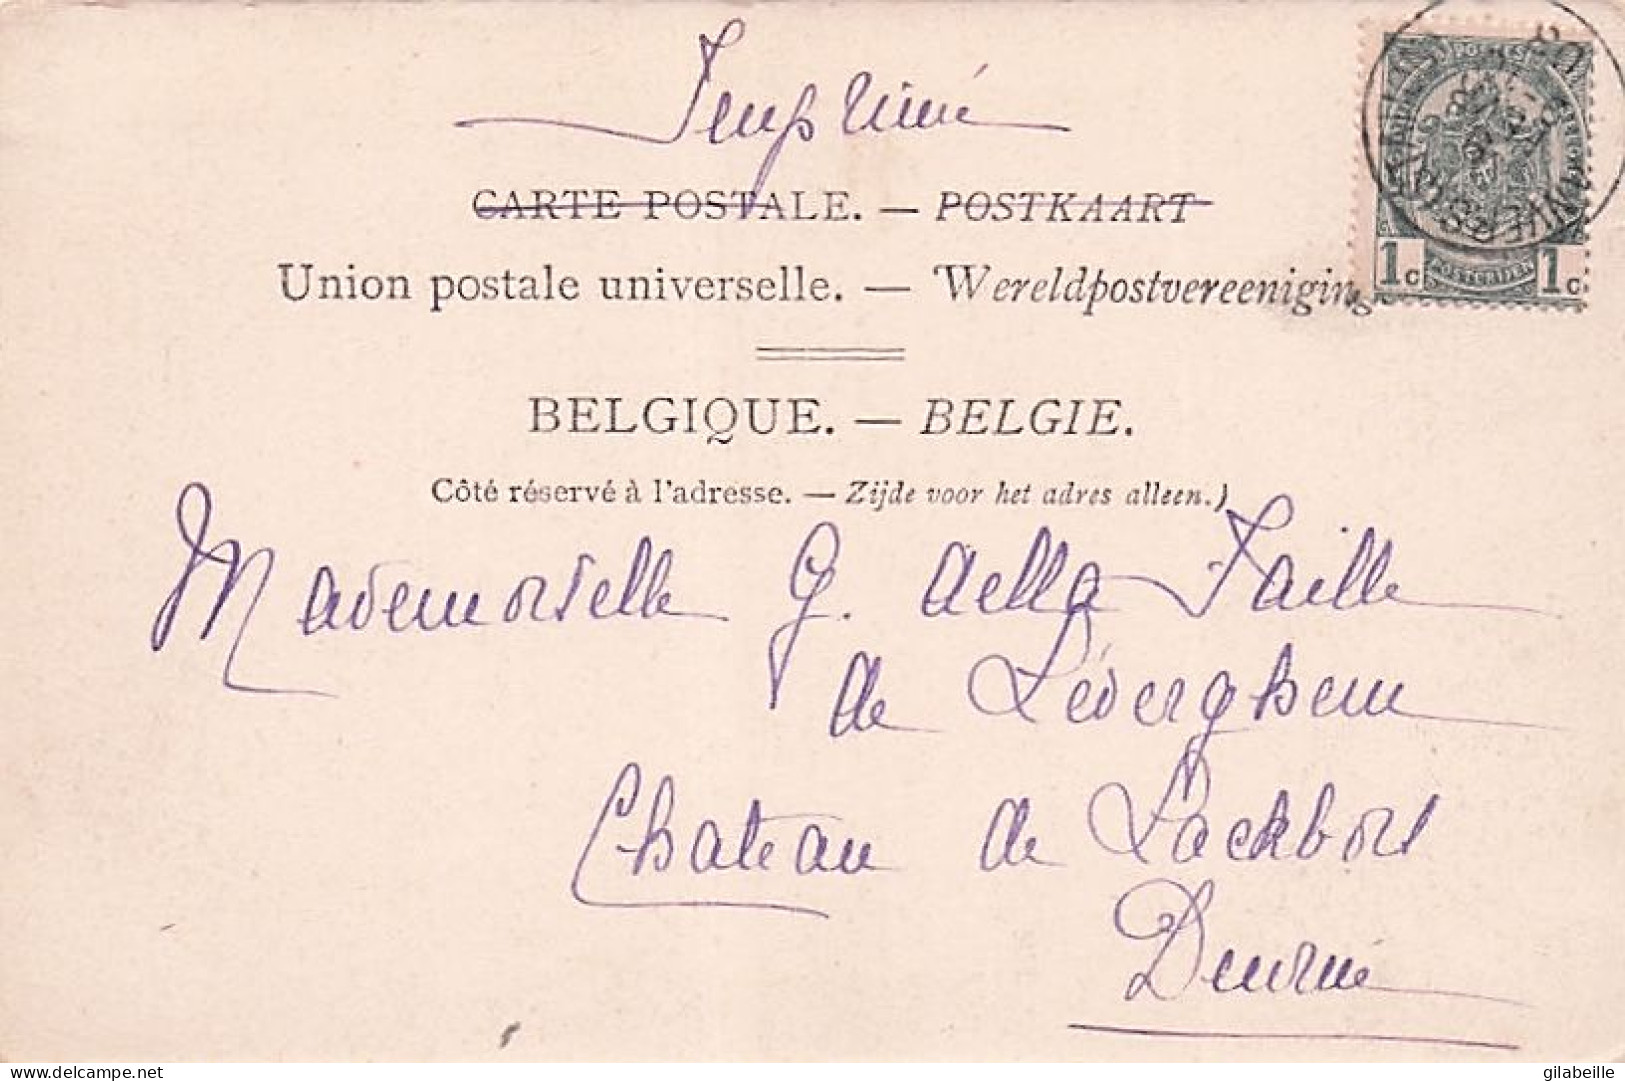 Imprimé
CARTE POSTALE. — POSTKAART
Union postale universelle. — Wereldpostvereeniging
BELGIQUE. — BELGIE.
Côté réservé à l'adresse. — Zijde voor het adres alleen.)
Mademoiselle G. della Faille
de Léverghem
Château de
Deurne
POSTES
ANVERS
1c POSTERIJEN 1c
delcampe.net
gilabeille